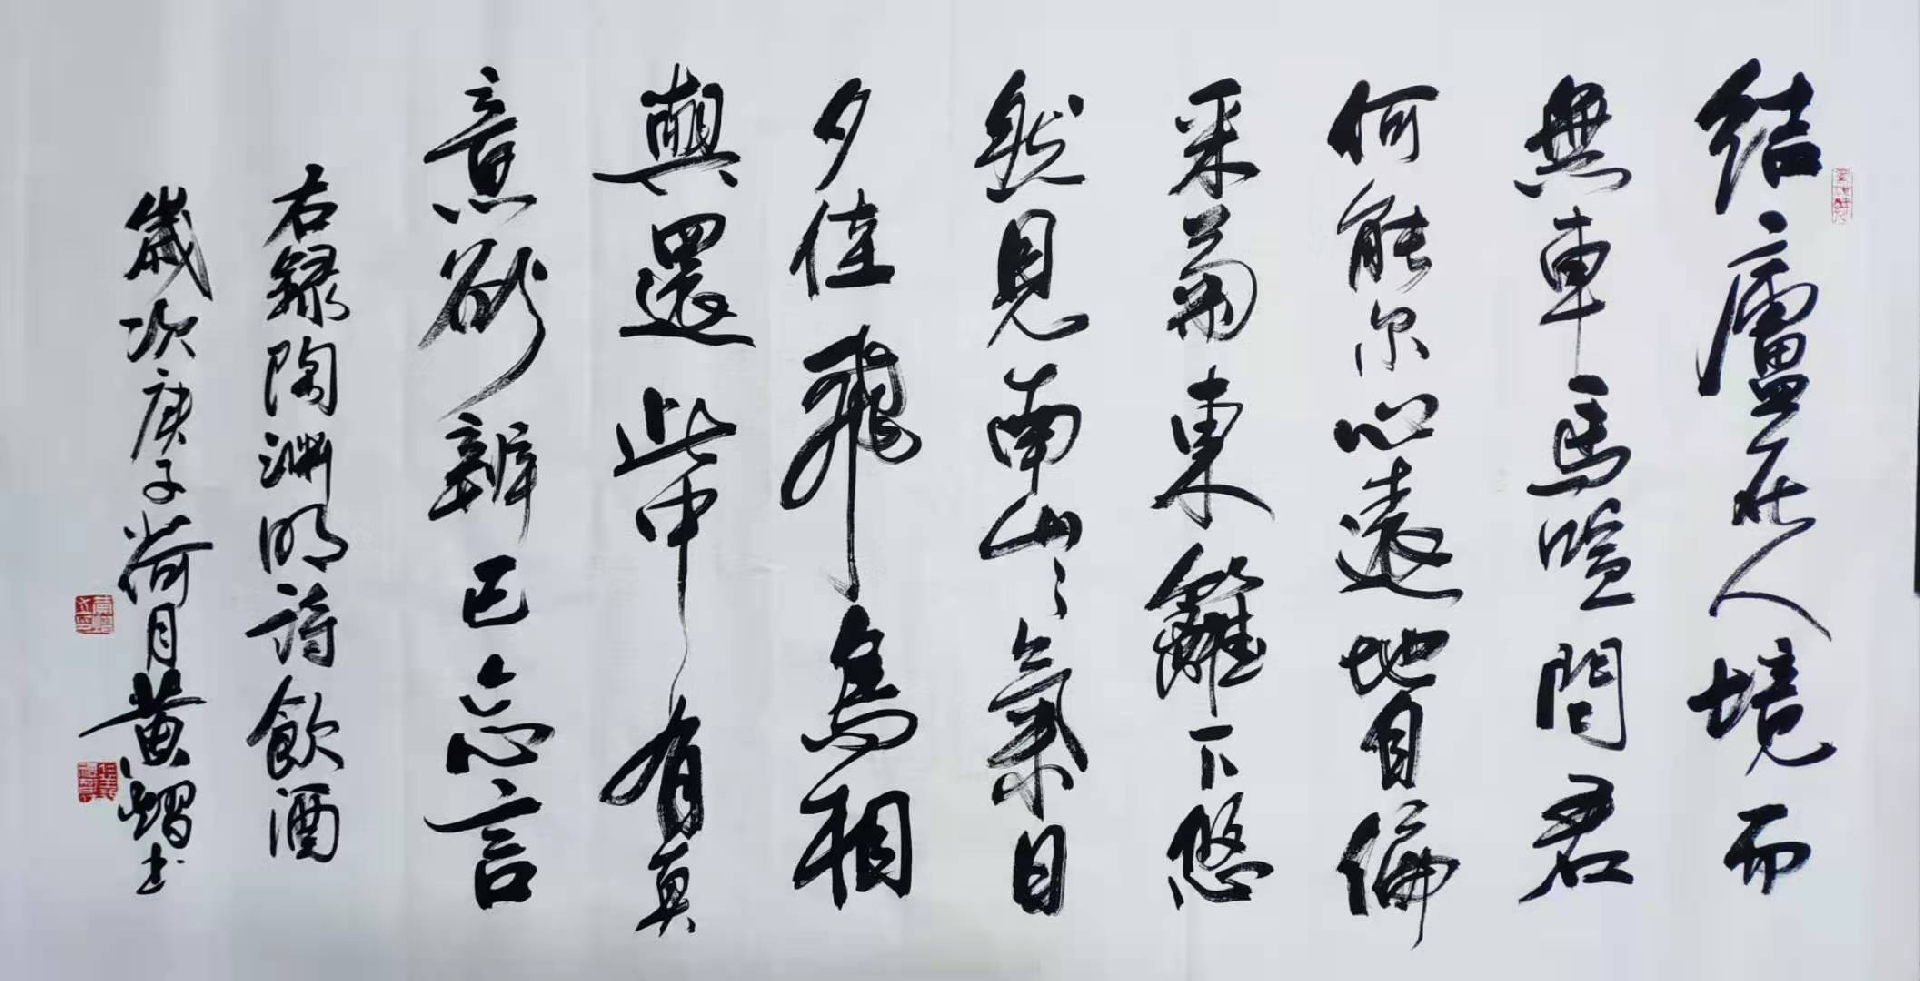 結廬在人境而
無車馬喧問君
何能尔心遠地自偏
采菊東籬下悠
然見南山〻氣日
夕佳飛鳥相
與還此中有真
意欲辨已忘言
右録陶淵明詩飲酒
歲次庚子荷月黄熠书